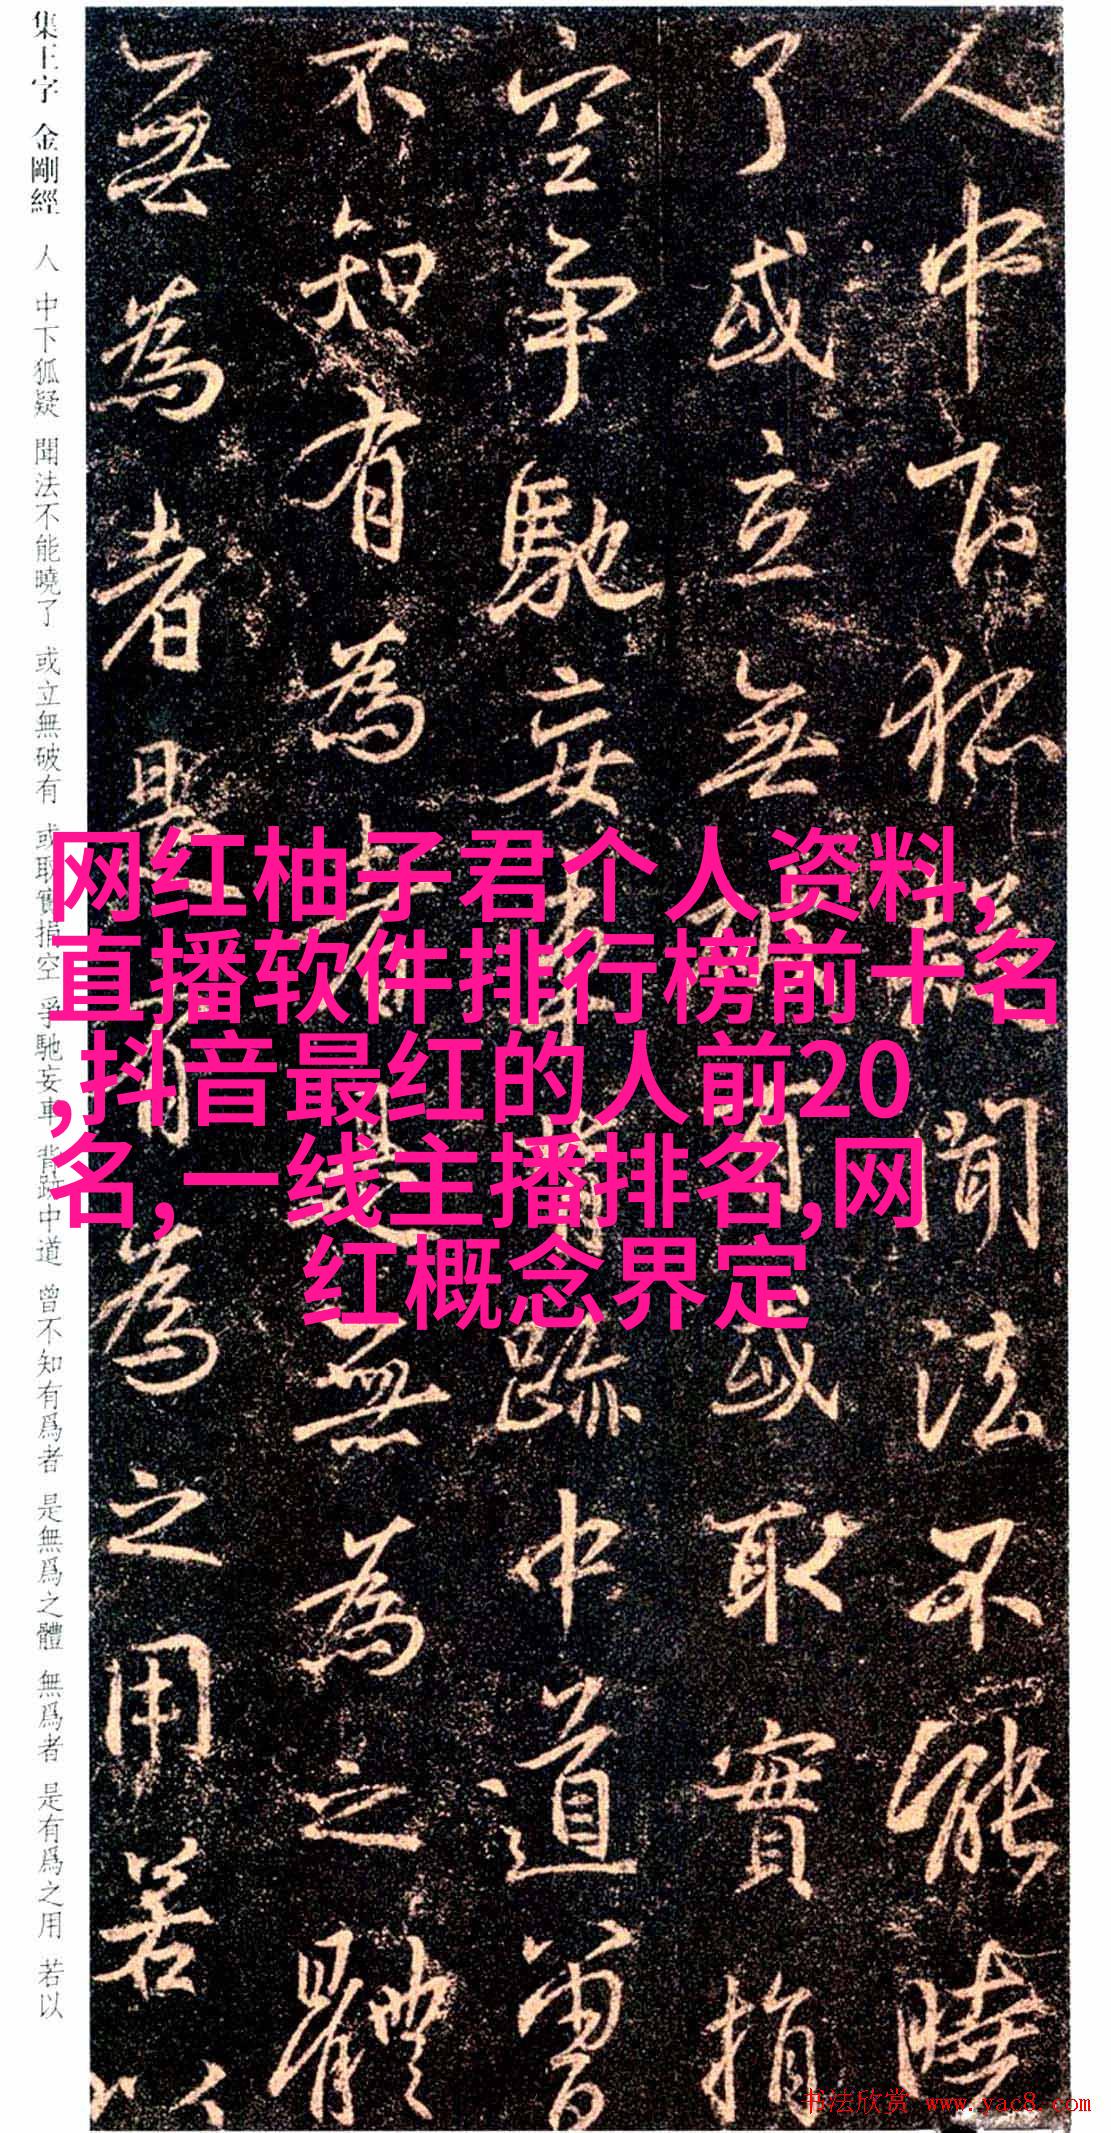 集王字 金剛經 人 中下狐疑 聞法不能曉了 或立無破有 或取實指空 爭馳妄車 背跡中道 曾不知有爲者 是無爲之體 無爲者 是有爲之用 若以
人中下狐疑聞法不能曉
了或立無破有或取實指
空爭馳妄車背跡中道曾
不知有為者是無為之體
無為者是有為之用若以
网红柚子君个人资料,
直播软件排行榜前十名
,抖音最红的人前20
名,一线主播排名,网
红概念界定
书法欣赏 www.yac8.com